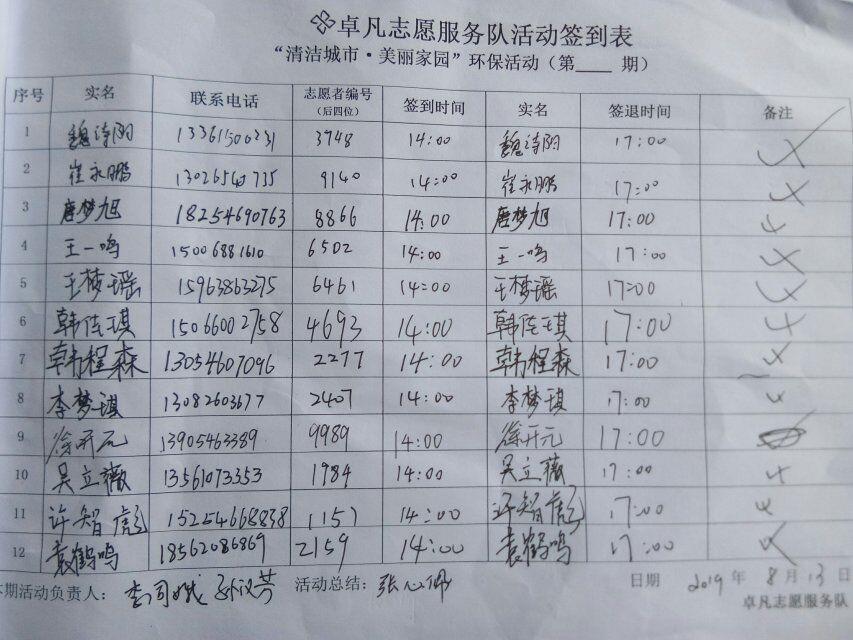 卓凡志愿服务队活动签到表
“清洁城市·美丽家园”环保活动（第____期）
序号 实名 联系电话 志愿者编号（后四位） 签到时间 实名 签退时间 备注
1 魏诗阳 13361500231 3948 14:00 魏诗阳 17:00
2 崔永鹏 13026540735 9140 14:00 崔永鹏 17:00
3 唐梦旭 18254690763 8866 14:00 唐梦旭 17:00
4 王一鸣 15006881610 6502 14:00 王一鸣 17:00
5 王梦瑶 15963863275 6461 14:00 王梦瑶 17:00
6 韩佳琪 15066002758 4693 14:00 韩佳琪 17:00
7 韩程森 13054607096 2277 14:00 韩程森 17:00
8 李梦琪 13082603677 2407 14:00 李梦琪 17:00
9 徐开元 13905463389 9989 14:00 徐开元 17:00
10 吴立薇 13561073353 1984 14:00 吴立薇 17:00
11 许智彪 15254668838 1157 14:00 许智彪 17:00
12 袁鹤鸣 18562086869 2159 14:00 袁鹤鸣 17:00
本期活动负责人： 活动总结： 张心 日期 2019年8月13日
卓凡志愿服务队